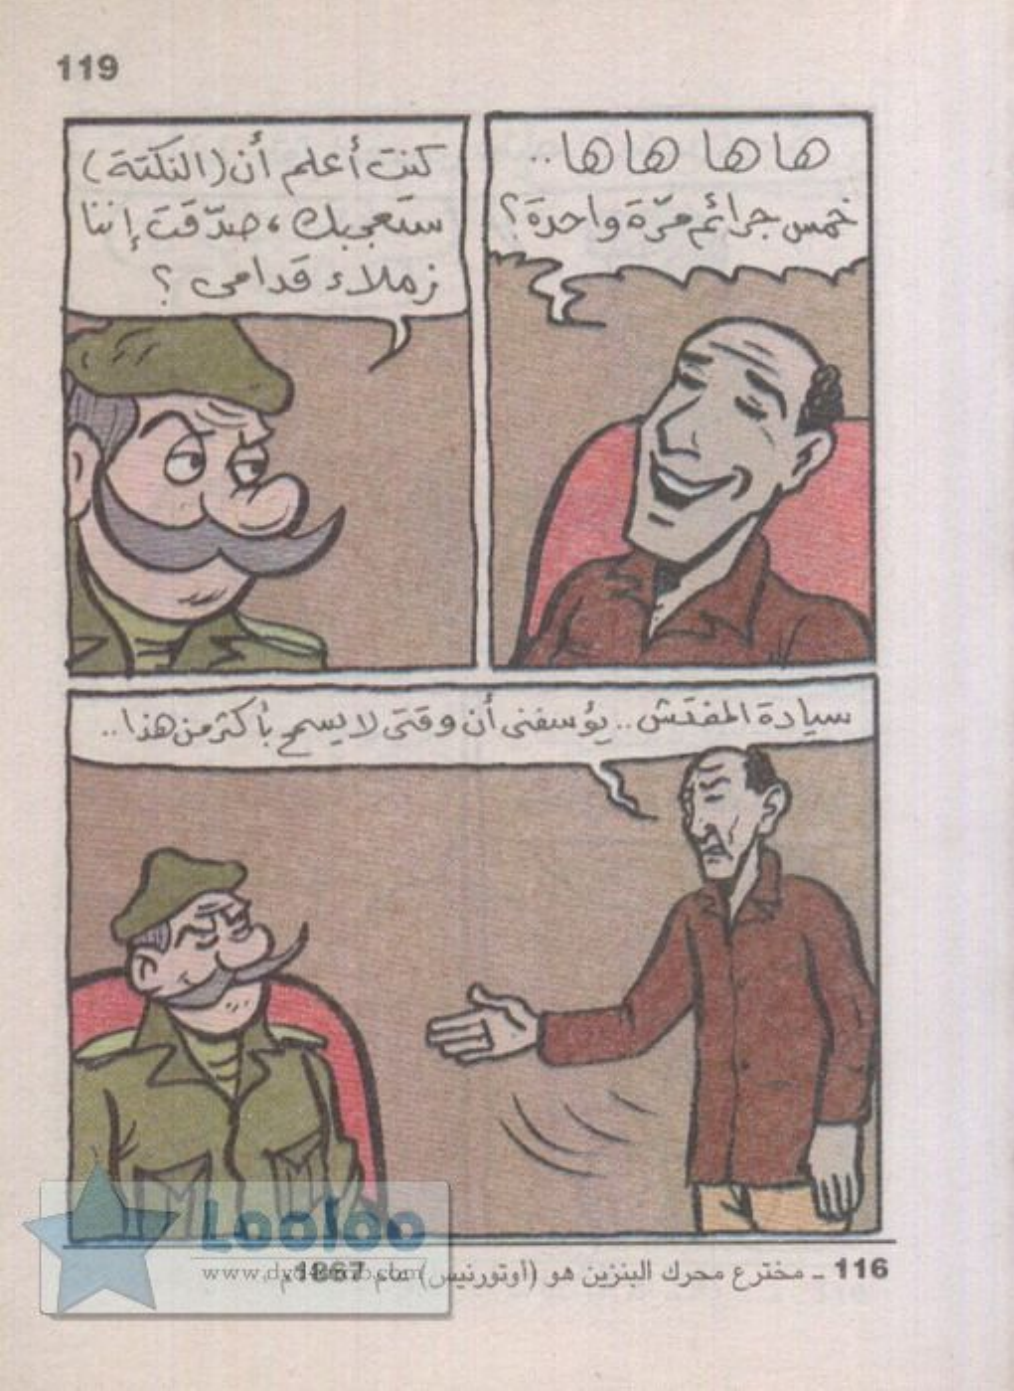 119
ها ها ها ها..
خمس جرائم مرّة واحدة؟
كنت أعلم أن (النكتة)
ستعجبك، صدّقت إننا
زملاء قدامى؟
سيادة المفتش.. يؤسفنى أن وقتى لا يسمح بأكثر من هذا..
116 ـ مخترع محرك البنزين هو (أوتورنيس) عام 1867م.
Looloo